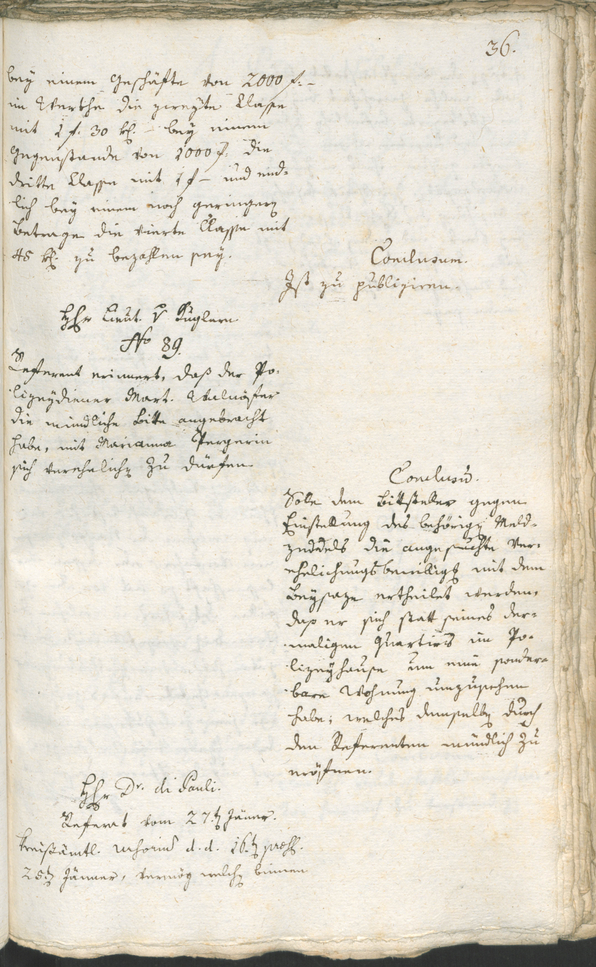 36.
bey einem Geschäfte von 2000 f.-
im Werthe die zweyte Classe
mit 1 f. 30 kr. - bey einem
Gegenstande von 1000 f. die
dritte Classe mit 1 f - und end-
lich bey einem noch geringern
Betrage die vierte Classe mit
45 kr. zu bezahlen sey.
Conclusum.
Ist zu publiziren.
Hhr Lieut. v Kuglern.
No 89.
Referent erinnert, daß der Po-
lizeydiener Mart.
die mündliche Bitte angebracht
habe, mit Marianna Pergerin
sich verehelichen zu dürfen.
Conclusū.
Solle dem Bittsteller gegen
Einstellung des behörigen Meld-
zeddels die angesuchte Ver-
ehelichungsbewilligg mit dem
Beysaze ertheilet werden,
daß er sich statt seines der-
maligen Quartirs im Po-
lizeyhause um eine sonder-
bare Wohnung umzusehen
habe; welches demselben durch
den Referenten mündlich zu
eröfnen.
Hhr Dr. di Pauli.
Referat vom 27ten Jänner.
Kreisämtl. d. d. 16ten
25ten Jänner, vermög welch binnen